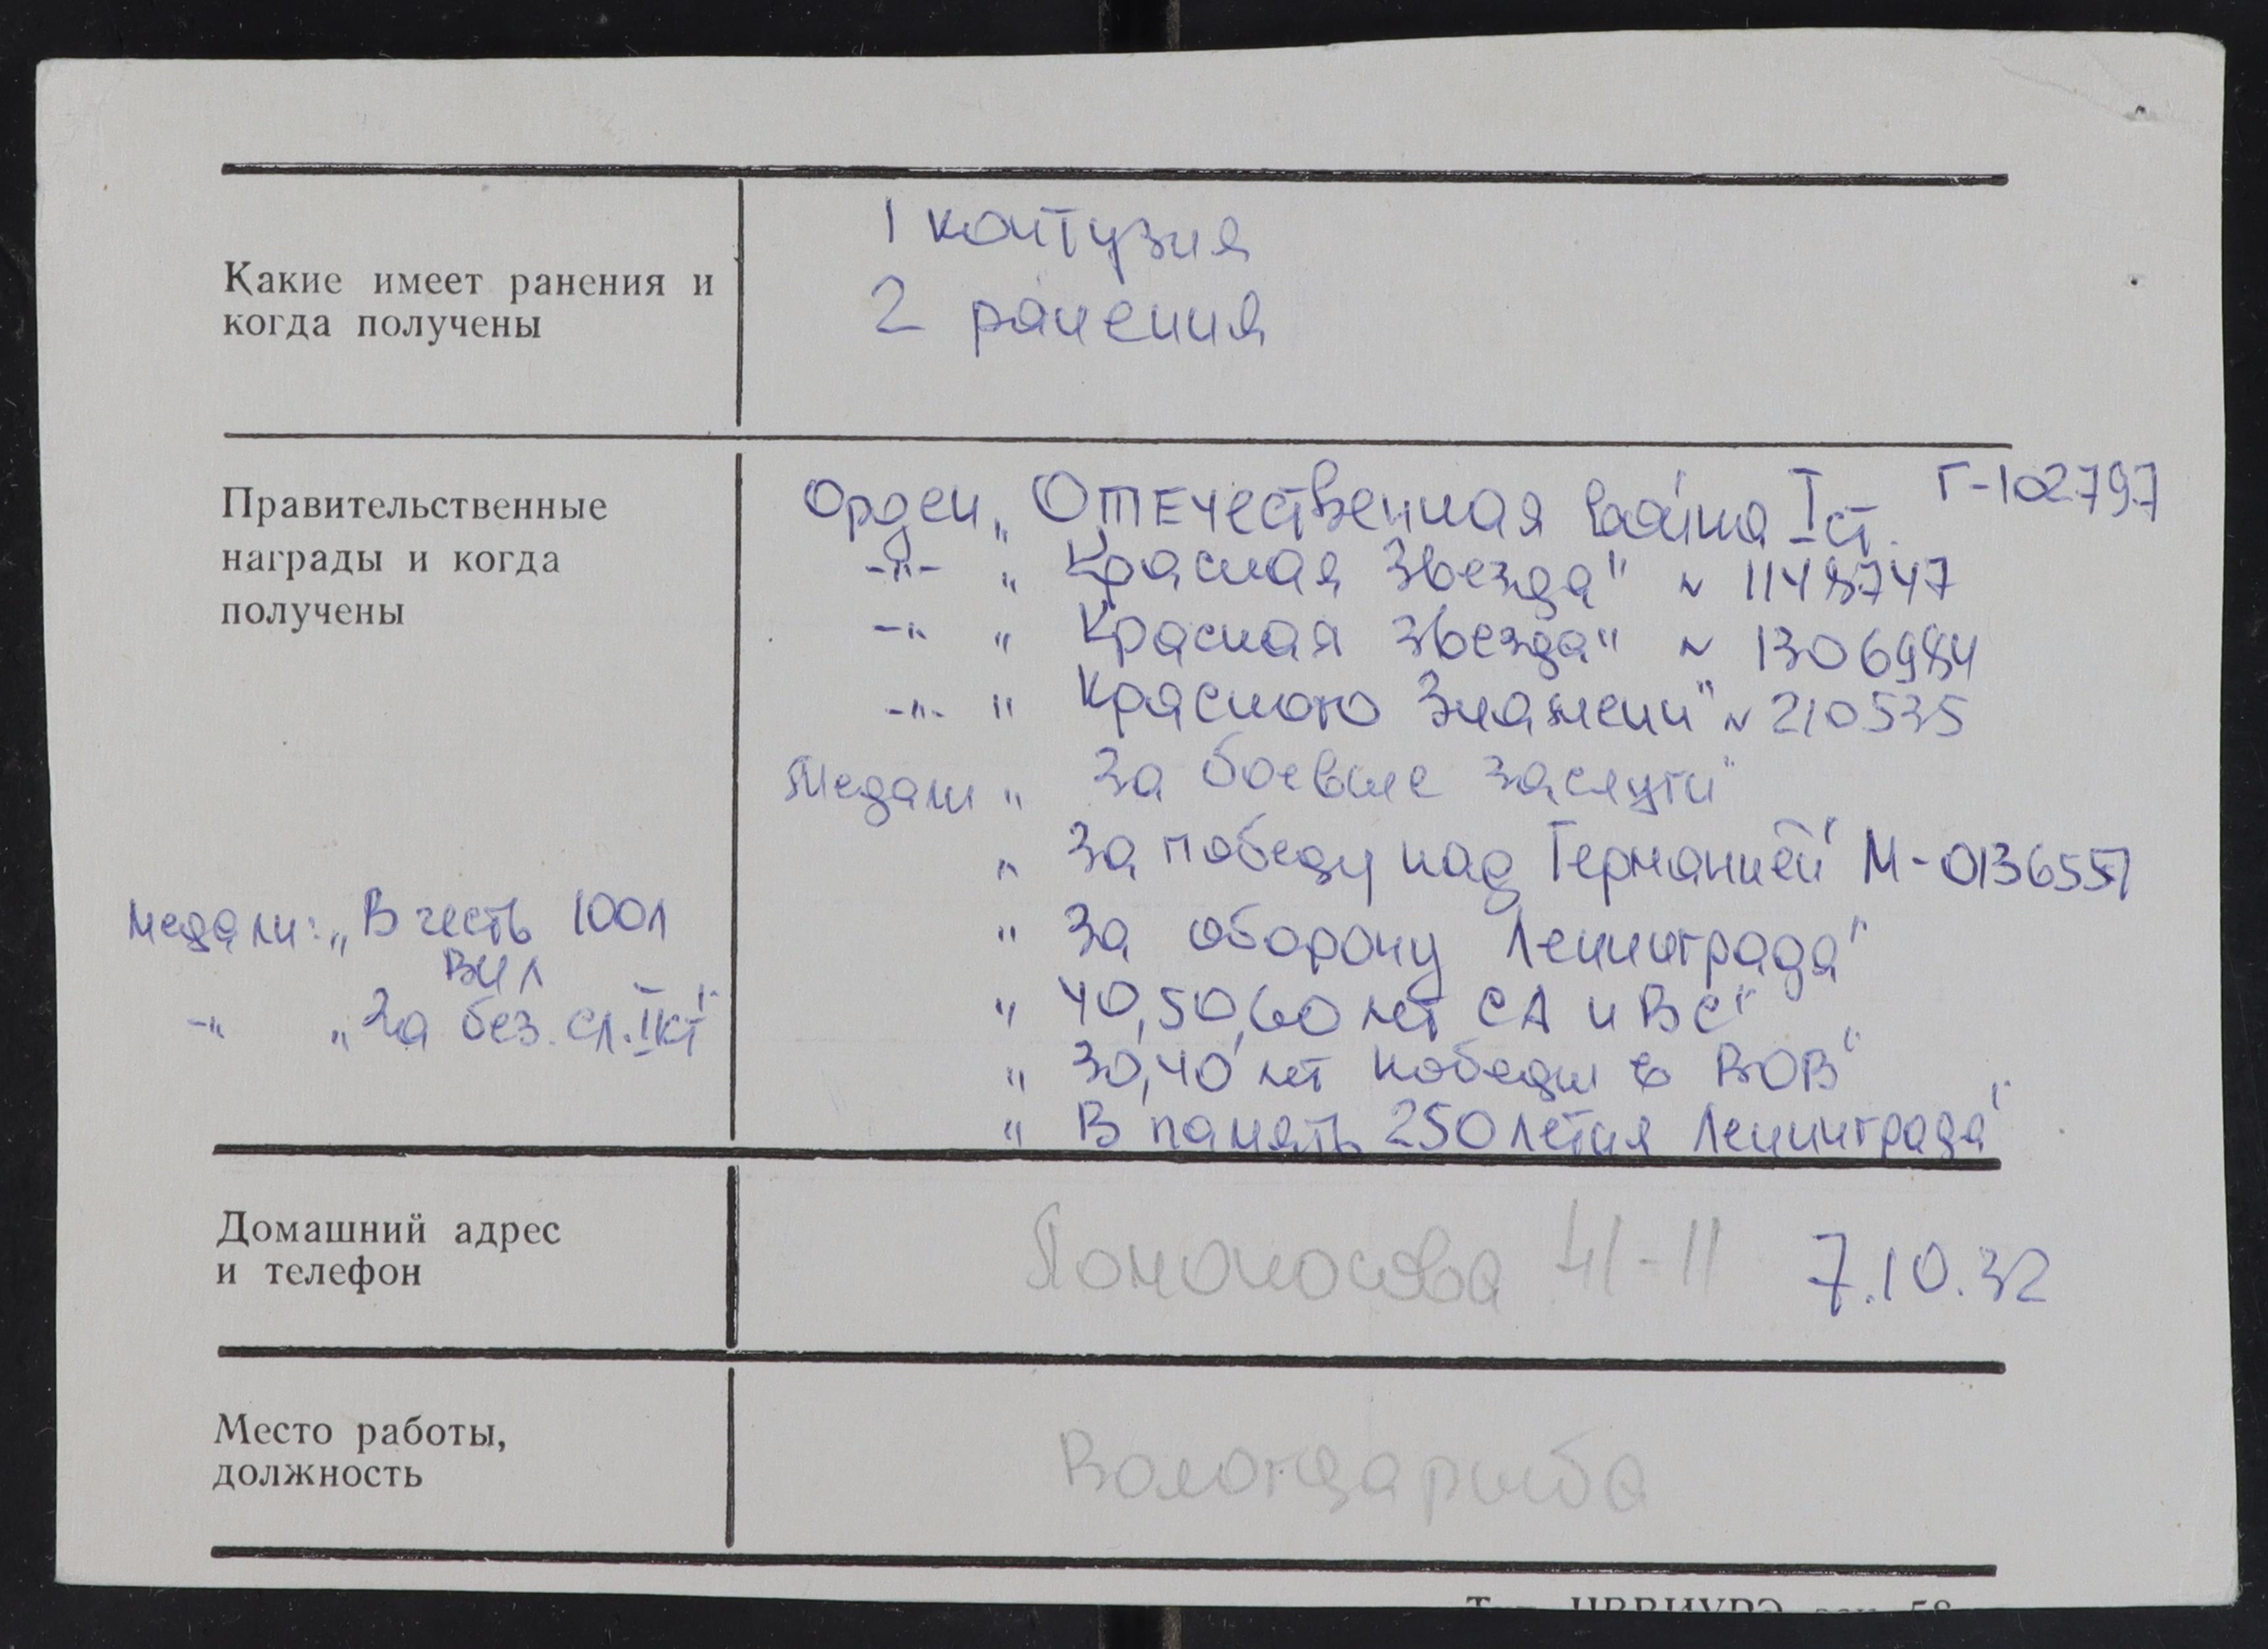 Какие имеет ранения и
когда получены
1 контузия
2 ранения
Правительственные
награды и когда
получены
Орден „ Отечественная война I ст. Г-102797
-"- „ Красная Звезда" № 1148747
-"- „ Красная Звезда" № 1306984
-"- „ Красного Знамени" № 210535
Медали „ За боевые заслуги"
„ За победу над Германией" М-0136557
„ За оборону Ленинграда"
„ 40, 50, 60 лет СА и ВС"
„ 30, 40 лет победы в ВОВ"
„ В память 250 летия Ленинграда"
Медали: „ В честь 100 л
ВИЛ
-"- „ За без. сл. I кт"
Домашний адрес
и телефон
Ломоносова 41-11 7.10.32
Место работы,
должность
Вологдарыба